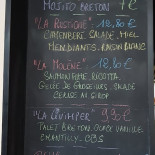 MOJITO BRETON 7€
"LA RUSTIQUE" 12,80€
CAMEMBERT, SALADE, MIEL
MENDIANTS, RAISIN BLANC
"LA MOLÈNE" 12,80€
SAUMON FUMÉ, RICOTTA,
GELÉE DE GROSEILLES, SALADE
CERISE AU SIROP
"LA QUIMPER" 9,30€
PALET BRETON, GLACE VANILLE,
CHANTILLY, CBS